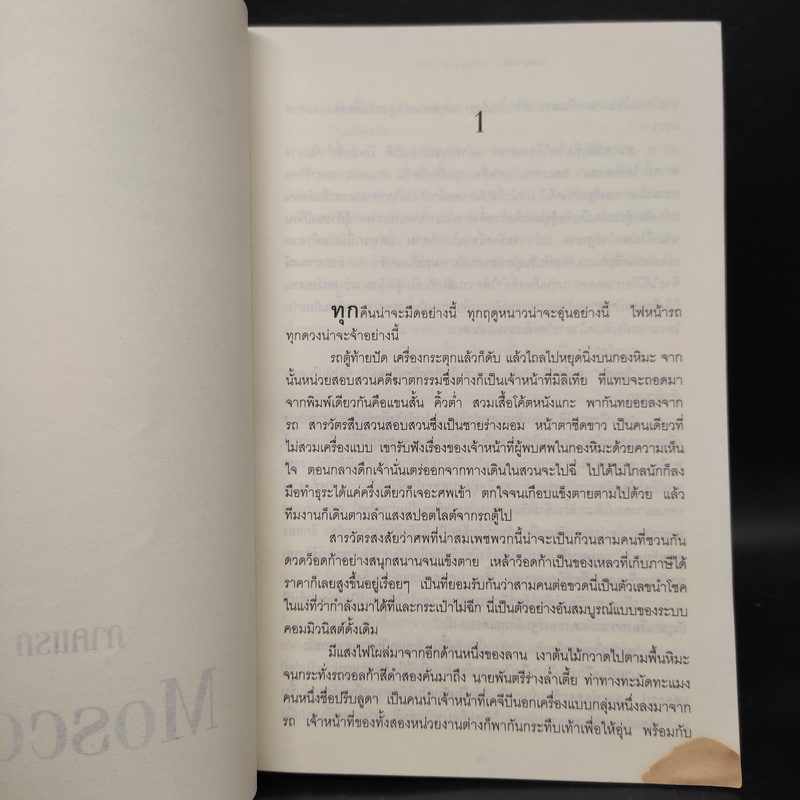 1
ทุกคืนน่าจะมืดอย่างนี้ ทุกฤดูหนาวน่าจะอุ่นอย่างนี้ ไฟหน้ารถ
ทุกดวงน่าจะจ้าอย่างนี้
รถตู้ท้ายปัด เครื่องกระตุกแล้วก็ดับ แล้วไถลไปหยุดนิ่งบนกองหิมะ จาก
นั้นหน่วยสอบสวนคดีฆาตกรรมซึ่งต่างก็เป็นเจ้าหน้าที่มิลิเทีย ที่แทบจะถอดมา
จากพิมพ์เดียวกันคือแขนสั้น คิ้วต่ำ สวมเสื้อโค้ตหนังแกะ พากันทยอยลงจาก
รถ สารวัตรสืบสวนสอบสวนซึ่งเป็นชายร่างผอม หน้าตาซีดขาว เป็นคนเดียวที่
ไม่สวมเครื่องแบบ เขารับฟังเรื่องของเจ้าหน้าที่ผู้พบศพในกองหิมะด้วยความเห็น
ใจ ตอนกลางดึกเจ้านั่นเตร่ออกจากทางเดินในสวนจะไปฉี่ ไปได้ไม่ไกลนักก็ลง
มือทำธุระได้แค่ครึ่งเดียวก็เจอะศพเข้า ตกใจจนเกือบแข็งตายตามไปด้วย แล้ว
ทีมงานก็เดินตามลำแสงสปอตไลต์จากรถตู้ไป
สารวัตรสงสัยว่าศพที่น่าสมเพชพวกนี้น่าจะเป็นก๊วนสามคนที่ชวนกัน
ดวดว็อดก้าอย่างสนุกสนานจนแข็งตาย เหล้าว็อดก้าเป็นของเหลวที่เก็บภาษีได้
ราคาก็เลยสูงขึ้นอยู่เรื่อยๆ เป็นที่ยอมรับกันว่าสามคนต่อขวดนี่เป็นตัวเลขนำโชค
ในแง่ที่ว่ากำลังเมาได้ที่และกระเป๋าไม่ฉีก นี่เป็นตัวอย่างอันสมบูรณ์แบบของระบบ
คอมมิวนิสต์ดั้งเดิม
มีแสงไฟโผล่มาจากอีกด้านหนึ่งของลาน เงาต้นไม้กวาดไปตามพื้นหิมะ
จนกระทั่งรถวอลก้าสีดำสองคันมาถึง นายพันตรีร่างล่ำเตี้ย ท่าทางทะมัดทะแมง
คนหนึ่งชื่อปรีบลูดา เป็นคนนำเจ้าหน้าที่เคจีบีนอกเครื่องแบบกลุ่มหนึ่งลงมาจาก
รถ เจ้าหน้าที่ของทั้งสองหน่วยงานต่างก็พากันกระทืบเท้าเพื่อให้อุ่น พร้อมกับ
ภาคแรก
Mosco